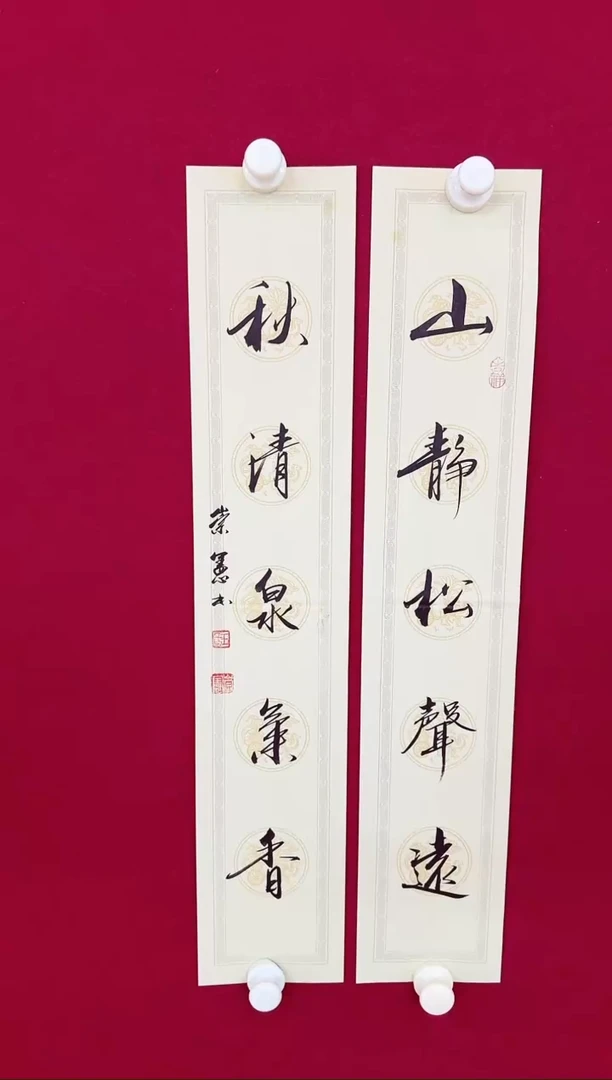 山靜松聲遠
秋清泉氣香
崇憲书